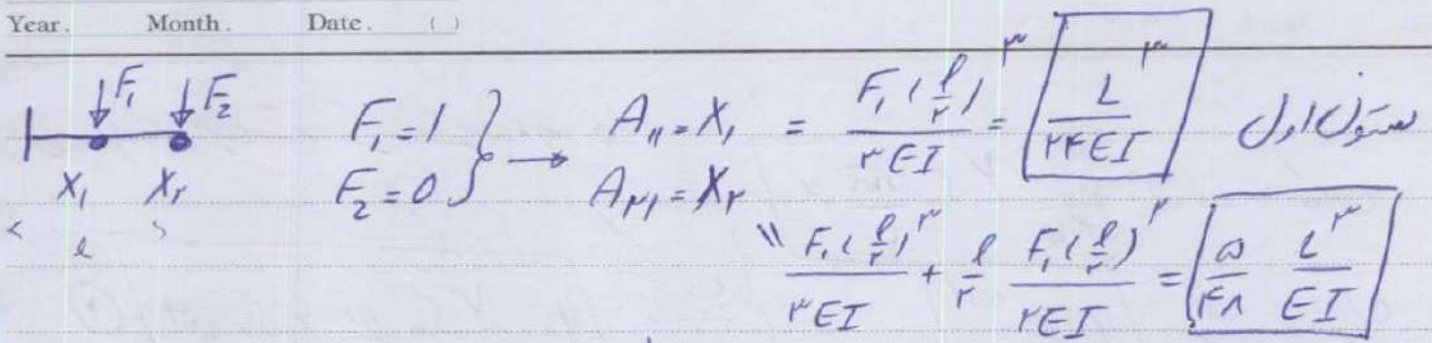 Year. Month. Date. ( )
F₁ F₂
X₁ X₂
l
F₁ = 1
F₂ = 0 } →
A₁₁ = X₁ = F₁(l/۲)^۳ / ۳EI = L^۳ / ۲۴EI ستون اول
A₂₁ = X₂
= F₁(l/۲)^۳ / ۳EI + l/۲ F₁(l/۲)^۲ / ۲EI = ۵/۴۸ L^۳/EI